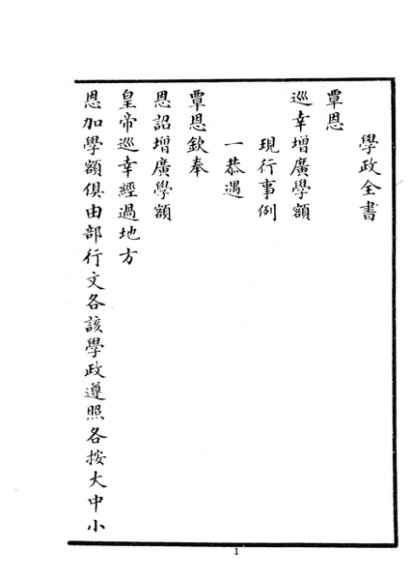 學政全書
覃恩
巡幸增廣學額
現行事例
一恭遇
覃恩欽奉
恩詔增廣學額
皇帝巡幸經過地方
恩加學額俱由部行文各該學政遵照各按大中小
1